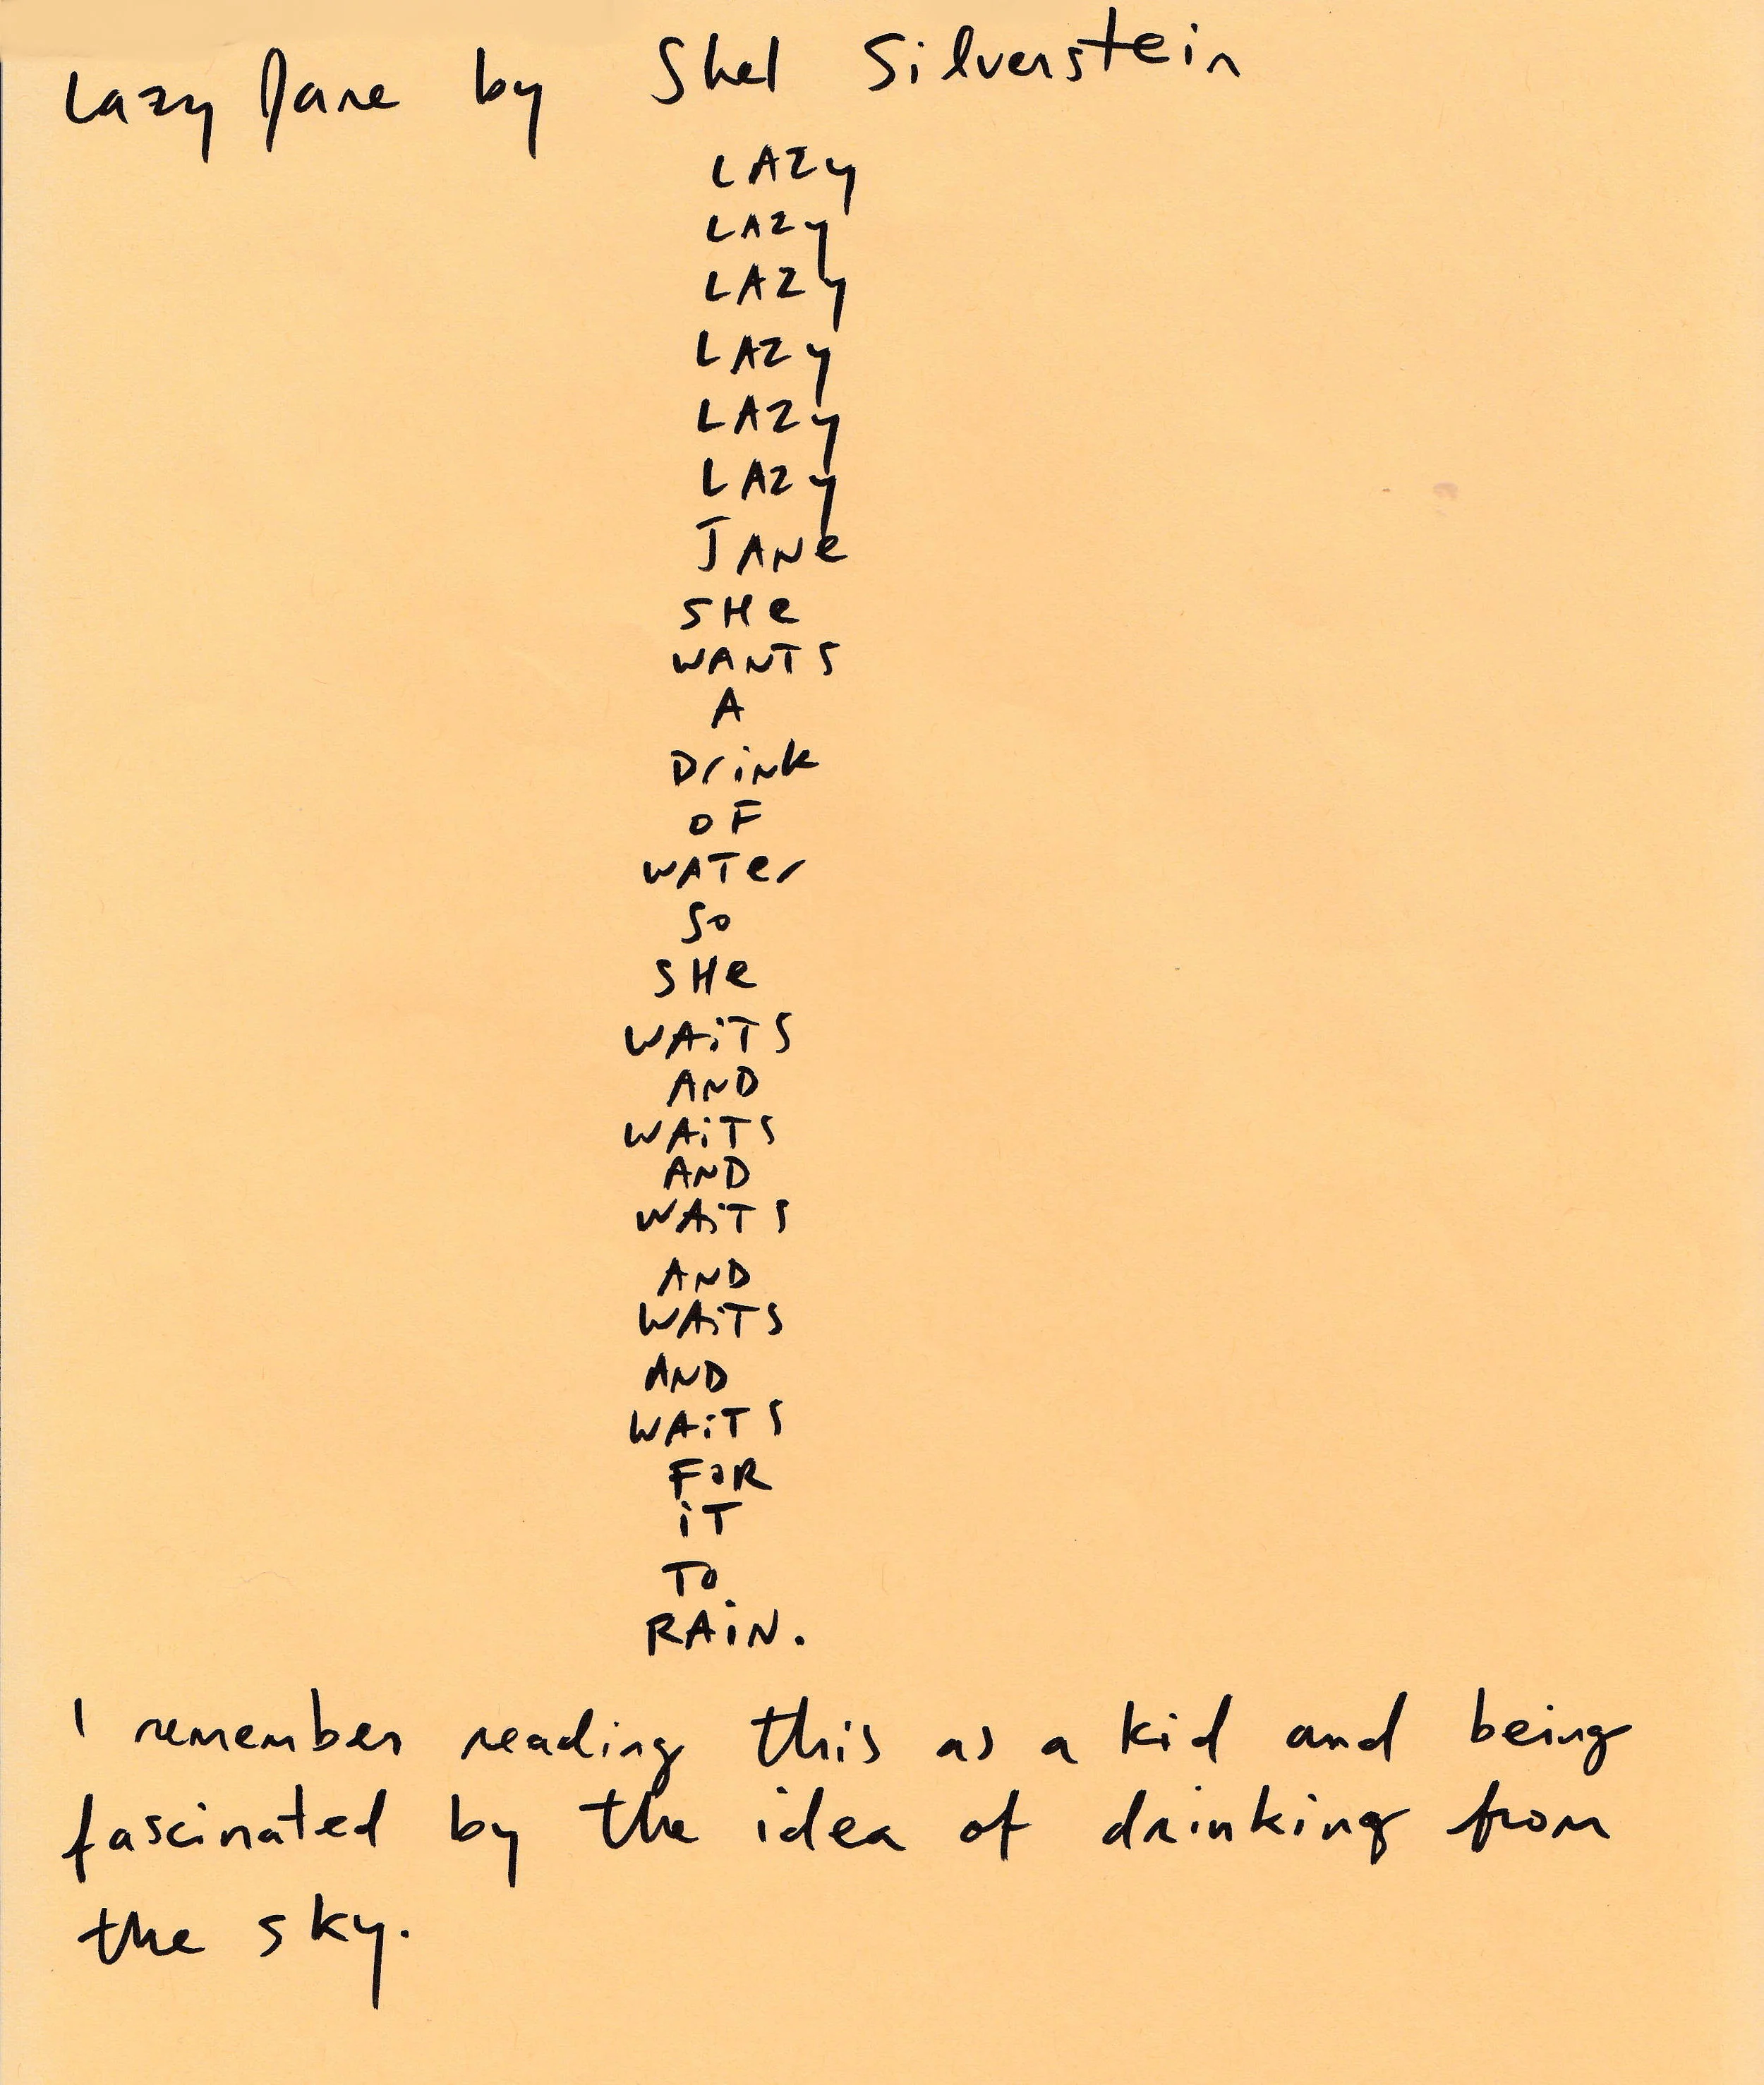 Lazy Jane by Shel Silverstein
LAZy
LAZy
LAZy
LAZy
LAZy
LAZy
JANe
SHe
WANTS
A
DrinK
OF
WATer
So
SHe
WAiTS
AND
WAiTS
AND
WAiTS
AND
WAiTS
AND
WAiTS
FOR
iT
To
RAiN.
I remember reading this as a kid and being
fascinated by the idea of drinking from
the sky.